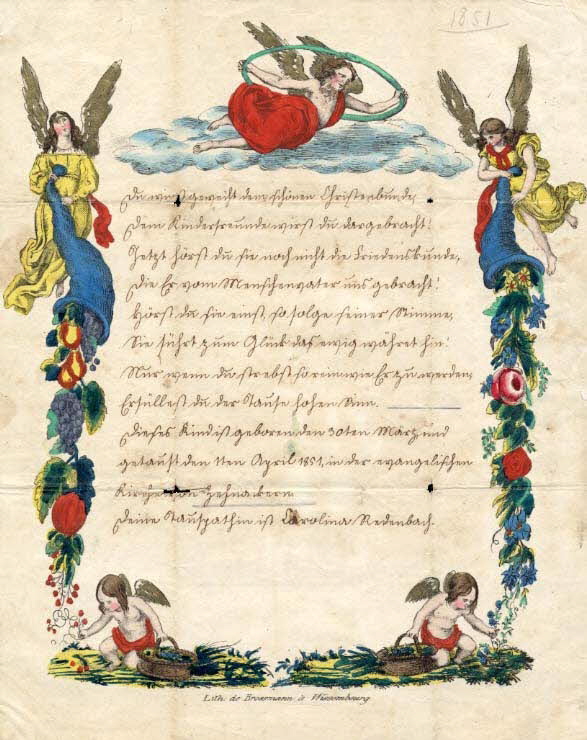 1851
Du wirst geweiht dem schönen Christenbunde,
Dem Kinderfreunde wirst du dargebracht!
Jetzt hörst du sie noch nicht die Friedenskunde,
Die Er vom Menschenvater uns gebracht!
Hörst du sie einst, so folge seiner Stimme,
Sie führt zum Glück das ewig währet hin!
Nur wenn du strebst so rein wie Er zu werden,
Erfüllest du der Taufe hohen Sinn.
Dieses Kind ist geboren den 30ten März und
getauft den 11ten April 1851, in der evangelischen
Kirche von Zehnackern
Deine Taufpathin ist Carolina Redenbach.
Lith. de Broermann à Wissembourg